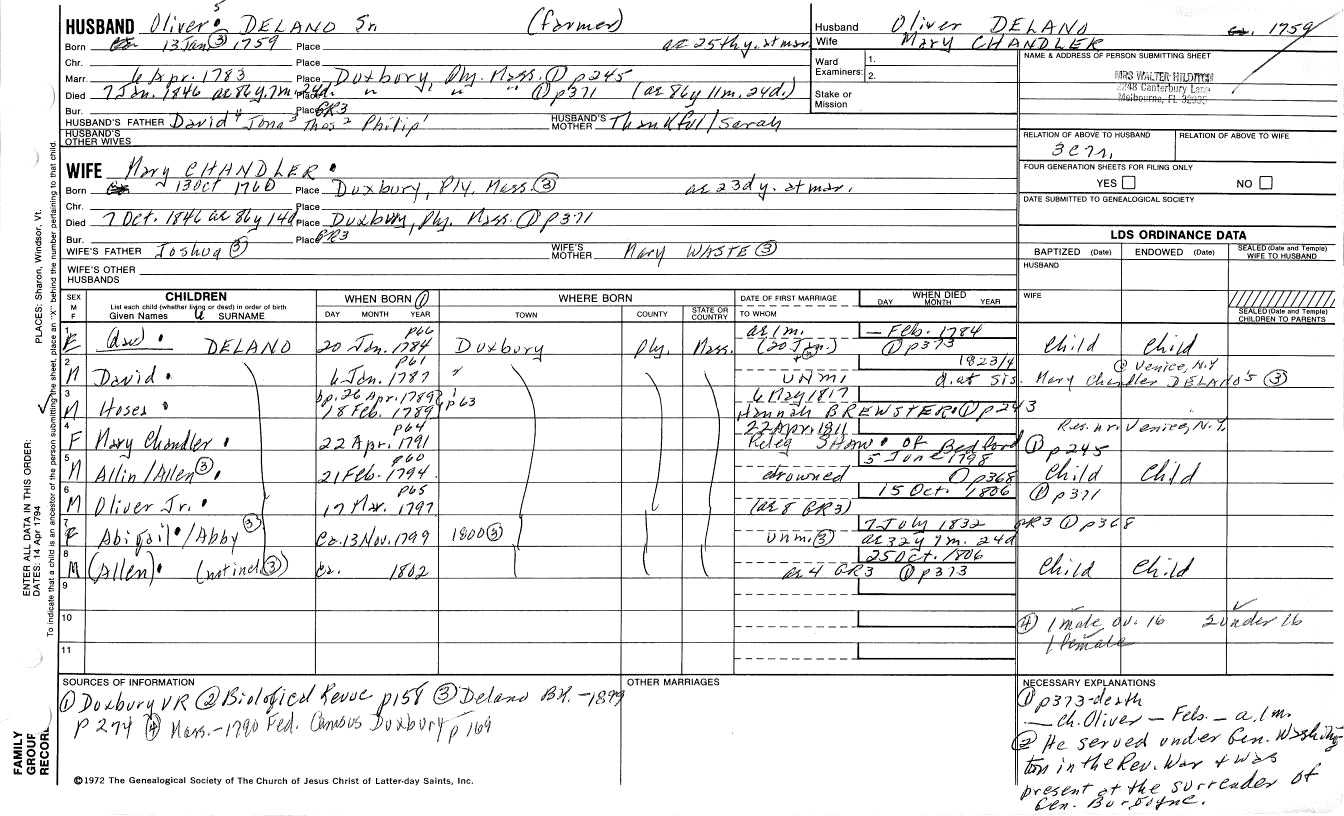 HUSBAND Oliver 5 DELANO Sr. (farmer)
Born 13 Jan ③ 1759 Place ae 25thy. at mar.
Chr. Place
Marr. 6 Apr. 1783 Place Duxbury, Ply. Mass. ① p245
Died 7 Jan. 1846 ae 86y, 7m. 24d. Place " " " ① p371 (ae 86y 11m. 24d.)
Bur. Place GR3
HUSBAND'S FATHER David 4 Jona 3 Thos 2 Philip 1 HUSBAND'S MOTHER Thankful/Sarah
HUSBAND'S OTHER WIVES
Husband Oliver DELANO 1759
Wife Mary CHANDLER
Ward Examiners: 1.
2.
Stake or Mission
NAME & ADDRESS OF PERSON SUBMITTING SHEET
MRS WALTER
2248 Canterbury Lane
Melbourne, FL 32935
RELATION OF ABOVE TO HUSBAND RELATION OF ABOVE TO WIFE
3c7r,
FOUR GENERATION SHEETS FOR FILING ONLY
YES NO
DATE SUBMITTED TO GENEALOGICAL SOCIETY
WIFE Mary CHANDLER
Born 13 Oct 1760 Place Duxbury, Ply, Mass. ③ ae 23dy. at mar.
Chr. Place
Died 7 Oct. 1846 ae 86y 14d Place Duxbury, Ply. Mass. ① p371
Bur. Place GR3
WIFE'S FATHER Joshua ③ WIFE'S MOTHER Mary WASTE ③
WIFE'S OTHER HUSBANDS
LDS ORDINANCE DATA
BAPTIZED (Date) ENDOWED (Date) SEALED (Date and Temple) WIFE TO HUSBAND
HUSBAND
WIFE
SEALED (Date and Temple) CHILDREN TO PARENTS
SEX M F
CHILDREN
List each child (whether living or dead) in order of birth
Given Names SURNAME
WHEN BORN ①
DAY MONTH YEAR
WHERE BORN
TOWN COUNTY STATE OR COUNTRY
DATE OF FIRST MARRIAGE
TO WHOM
WHEN DIED
DAY MONTH YEAR
1 F (dau) DELANO 20 Jan. 1784 p66 Duxbury Ply. Mass. ae 1m. (20 Jan.) — Feb. 1784 ① p373 Child Child
2 M David 6 Jan. 1787 p61 " unm. 1823/4 d. at sis. Mary Chandler DELANO'S ③ @ Venice, N.Y
3 M Hoses bp. 26 Apr. 1789 18 Feb. 1789 p63 6 May 1817 Hannah BREWSTER ① p243
4 F Mary Chandler 22 Apr. 1791 p64 22 Apr. 1811 Peleg SHAW of Bedford ① p245 Res. nr. Venice, N.Y.
5 M Allin/Allen ③ 21 Feb. 1794 p60 drowned 5 June 1798 ① p368 Child Child
6 M Oliver Jr. 17 Mar. 1797 p65 (ae 8 GR3) 15 Oct. 1806 ① p371
7 F Abigail/Abby ③ ca. 13 Nov. 1799 1800 ③ unm. ③ 7 July 1832 ae 32y 7m. 24d GR3 ① p368
8 M (Allen) (not incl. ③) ca. 1802 ae 4 GR3 25 Oct. 1806 ① p373 Child Child
9
10 ④ 1 male ov. 16 2 under 16
1 female
11
SOURCES OF INFORMATION
① Duxbury VR ② Biological Revue p158 ③ Delano BK. -1899
p 274 ④ Mass. -1790 Fed. Census Duxbury p 169
OTHER MARRIAGES
NECESSARY EXPLANATIONS
① p373-death
— ch. Oliver — Feb. — a. 1m.
② He served under Gen. Washing-
ton in the Rev. War + was
present at the surrender of
Gen. Burgoyne.
©1972 The Genealogical Society of The Church of Jesus Christ of Latter-day Saints, Inc.
FAMILY GROUP RECORD
ENTER ALL DATA IN THIS ORDER:
DATES: 14 Apr 1794
PLACES: Sharon, Windsor, Vt.
To indicate that a child is an ancestor of the person submitting the sheet, place an "X" behind the number pertaining to that child.